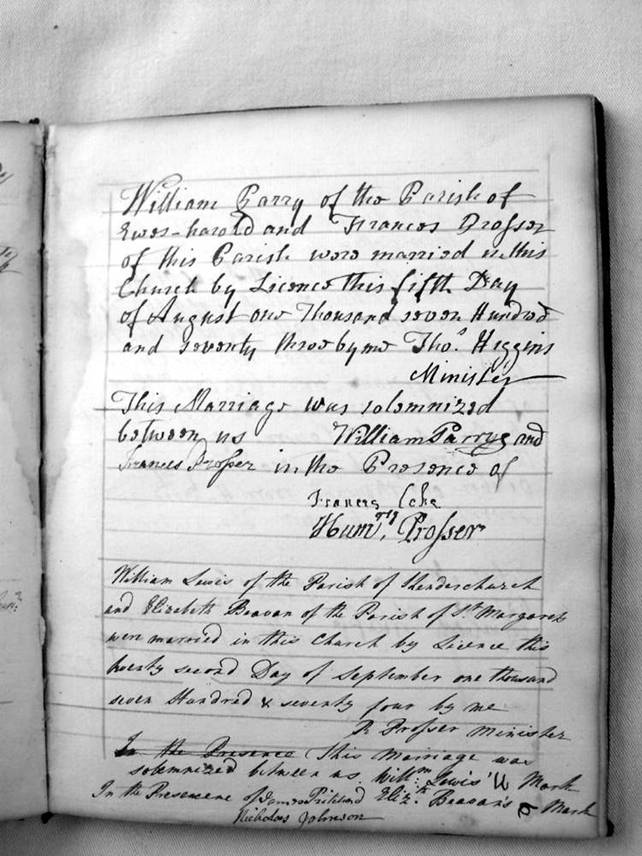 William Parry of the Parish of
Ewes-harold and Frances Prosser
of this Parish were married in this
Church by Licence this fifth Day
of August one Thousand seven Hundred
and seventy three by me Tho.s Higgins
Minister
This Marriage was solemnized
between us William Parry and
Frances Prosser in the Presence of
Frances
Hum.ry Prosser
William Lewis of the Parish of Kenderchurch
and Elizabeth Beavan of the Parish of St Margaret
were married in this Church by Licence this
twenty second Day of September one thousand
seven Hundred & seventy four by me
R Prosser Minister
In the Presence This Marriage was
solemnized between us Will.m Lewis's Mark
In the Presence of James Pritchard Eliz.th Beavan's Mark
Nicholas Johnson